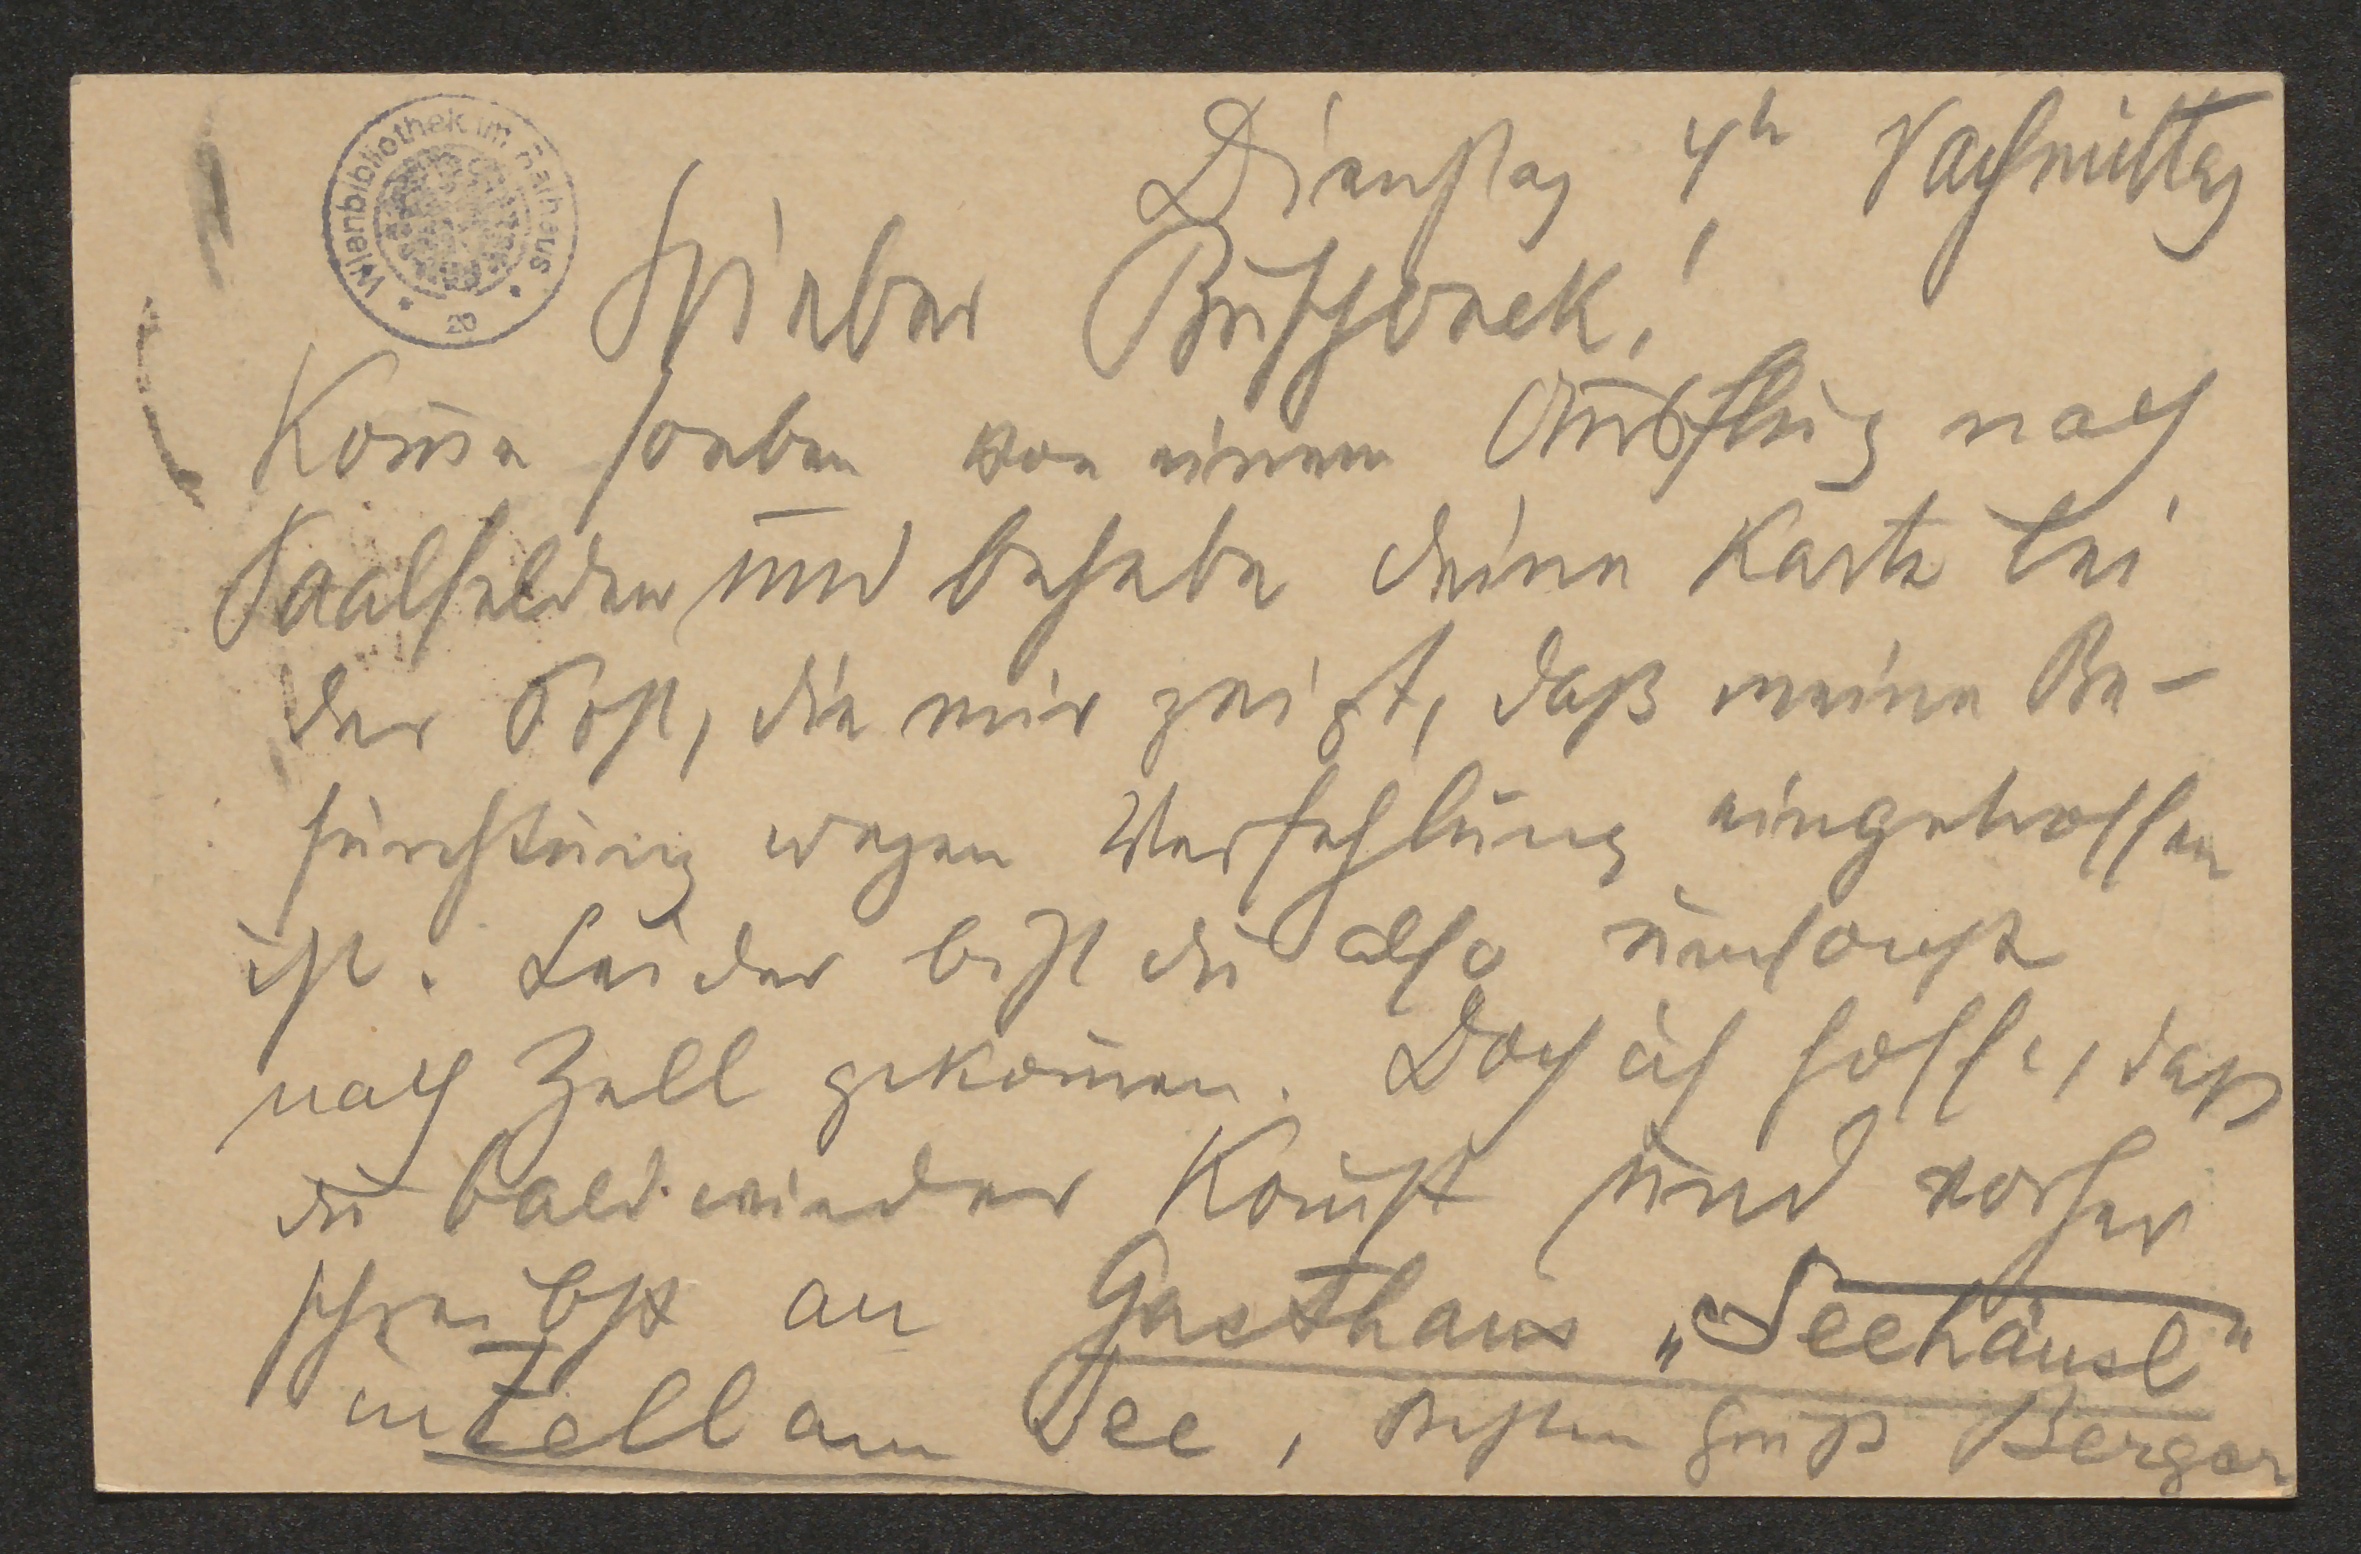 Wienbibliothek im Rathaus
20
Dienstag 4h Nachmittag
Lieber Butschbeck!
Kom̅e soeben von einem Ausflug nach
Saalfelden und behebe deine Karte bei
der Post, die mir zeigt, daß meine Be-
fürchtung wegen Verfehlung eingetroffen
ist. Leider bist du also umsonst
nach Zell gekom̅en. Doch ich hoffe, daß
du bald wieder kom̅st und vorher
schreibst an Gasthaus „Seehäusl"
in Zell am See, besten Gruß Berger